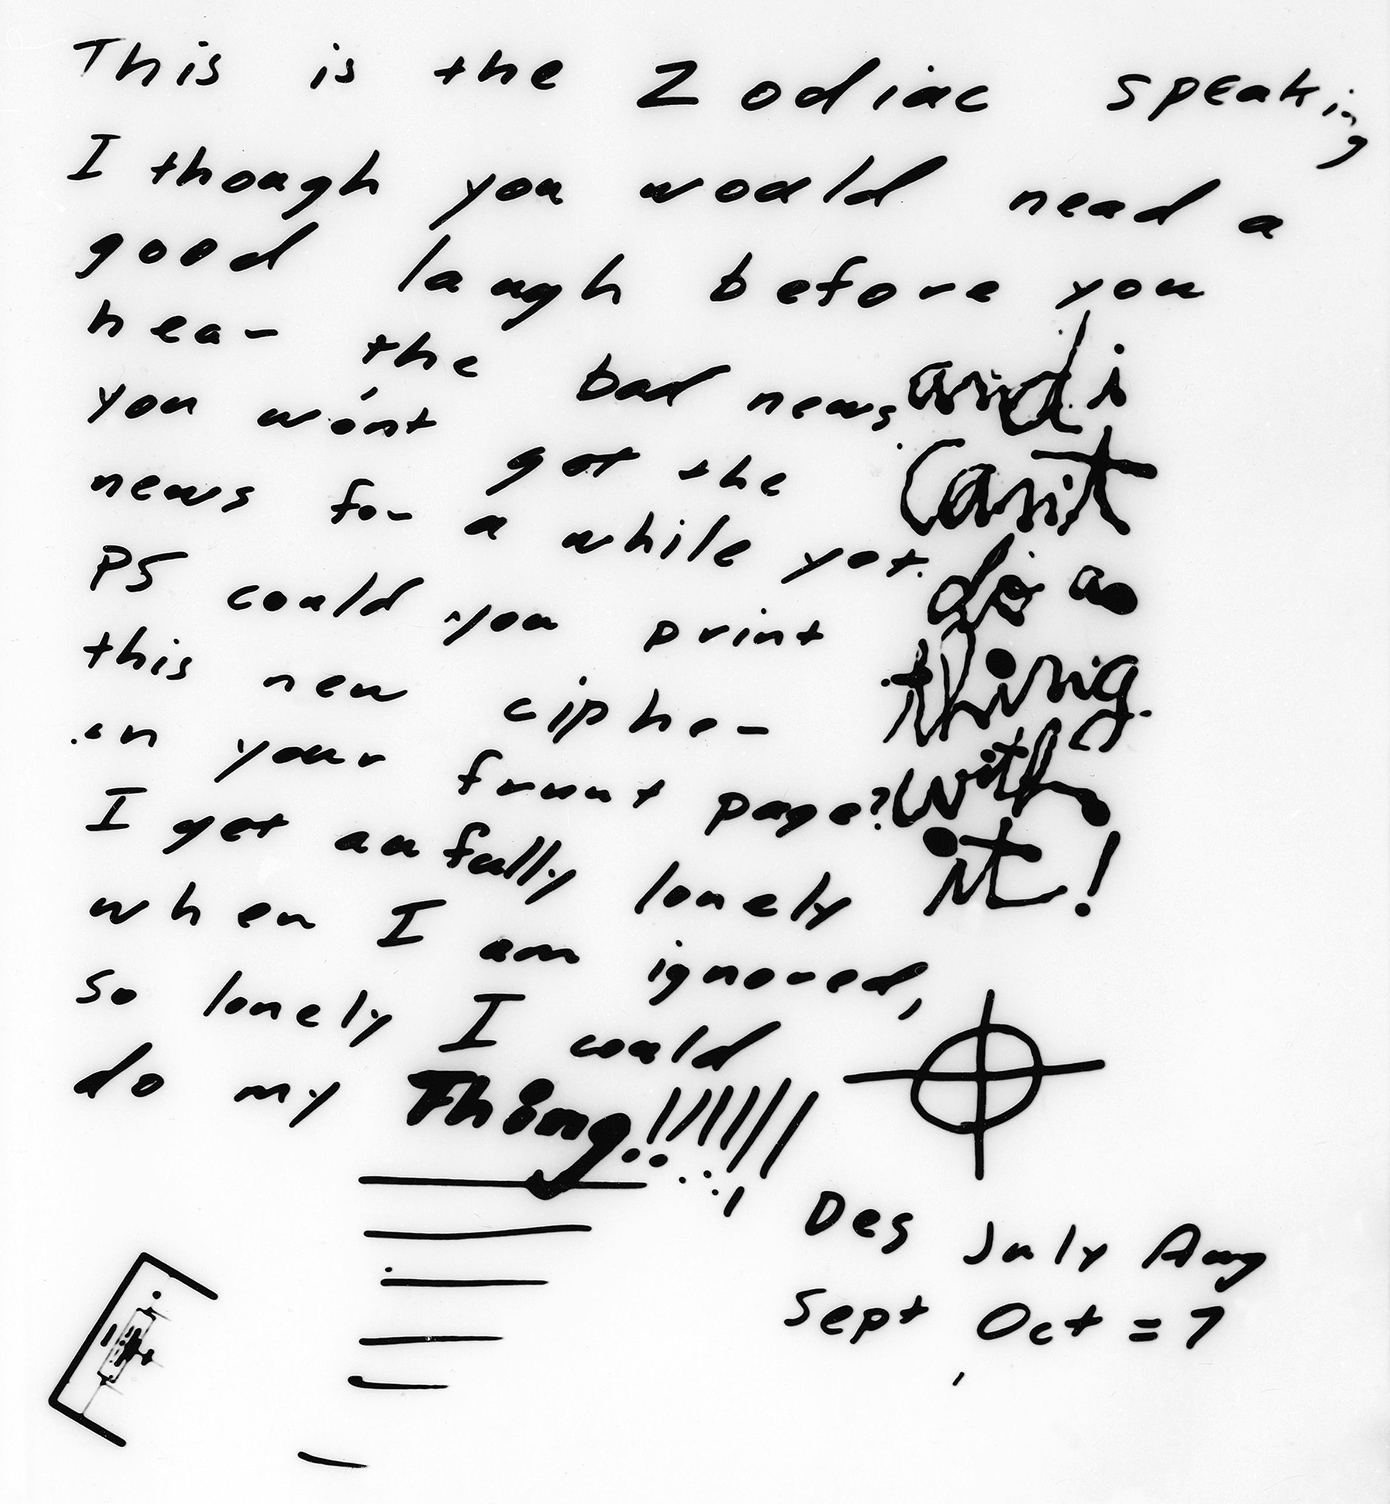 This is the Zodiac speaking
I though you woald nead a
good laugh before you
hear the bad news
you won't get the
news for a while yet.
PS could you print
this new cipher
in your frunt page?
I get aufully lonely
when I am ignored,
so lonely I could
do my Thing!!!!!!
and i
can't
do a
thing
with
it!
Des July Aug
Sept Oct = 7